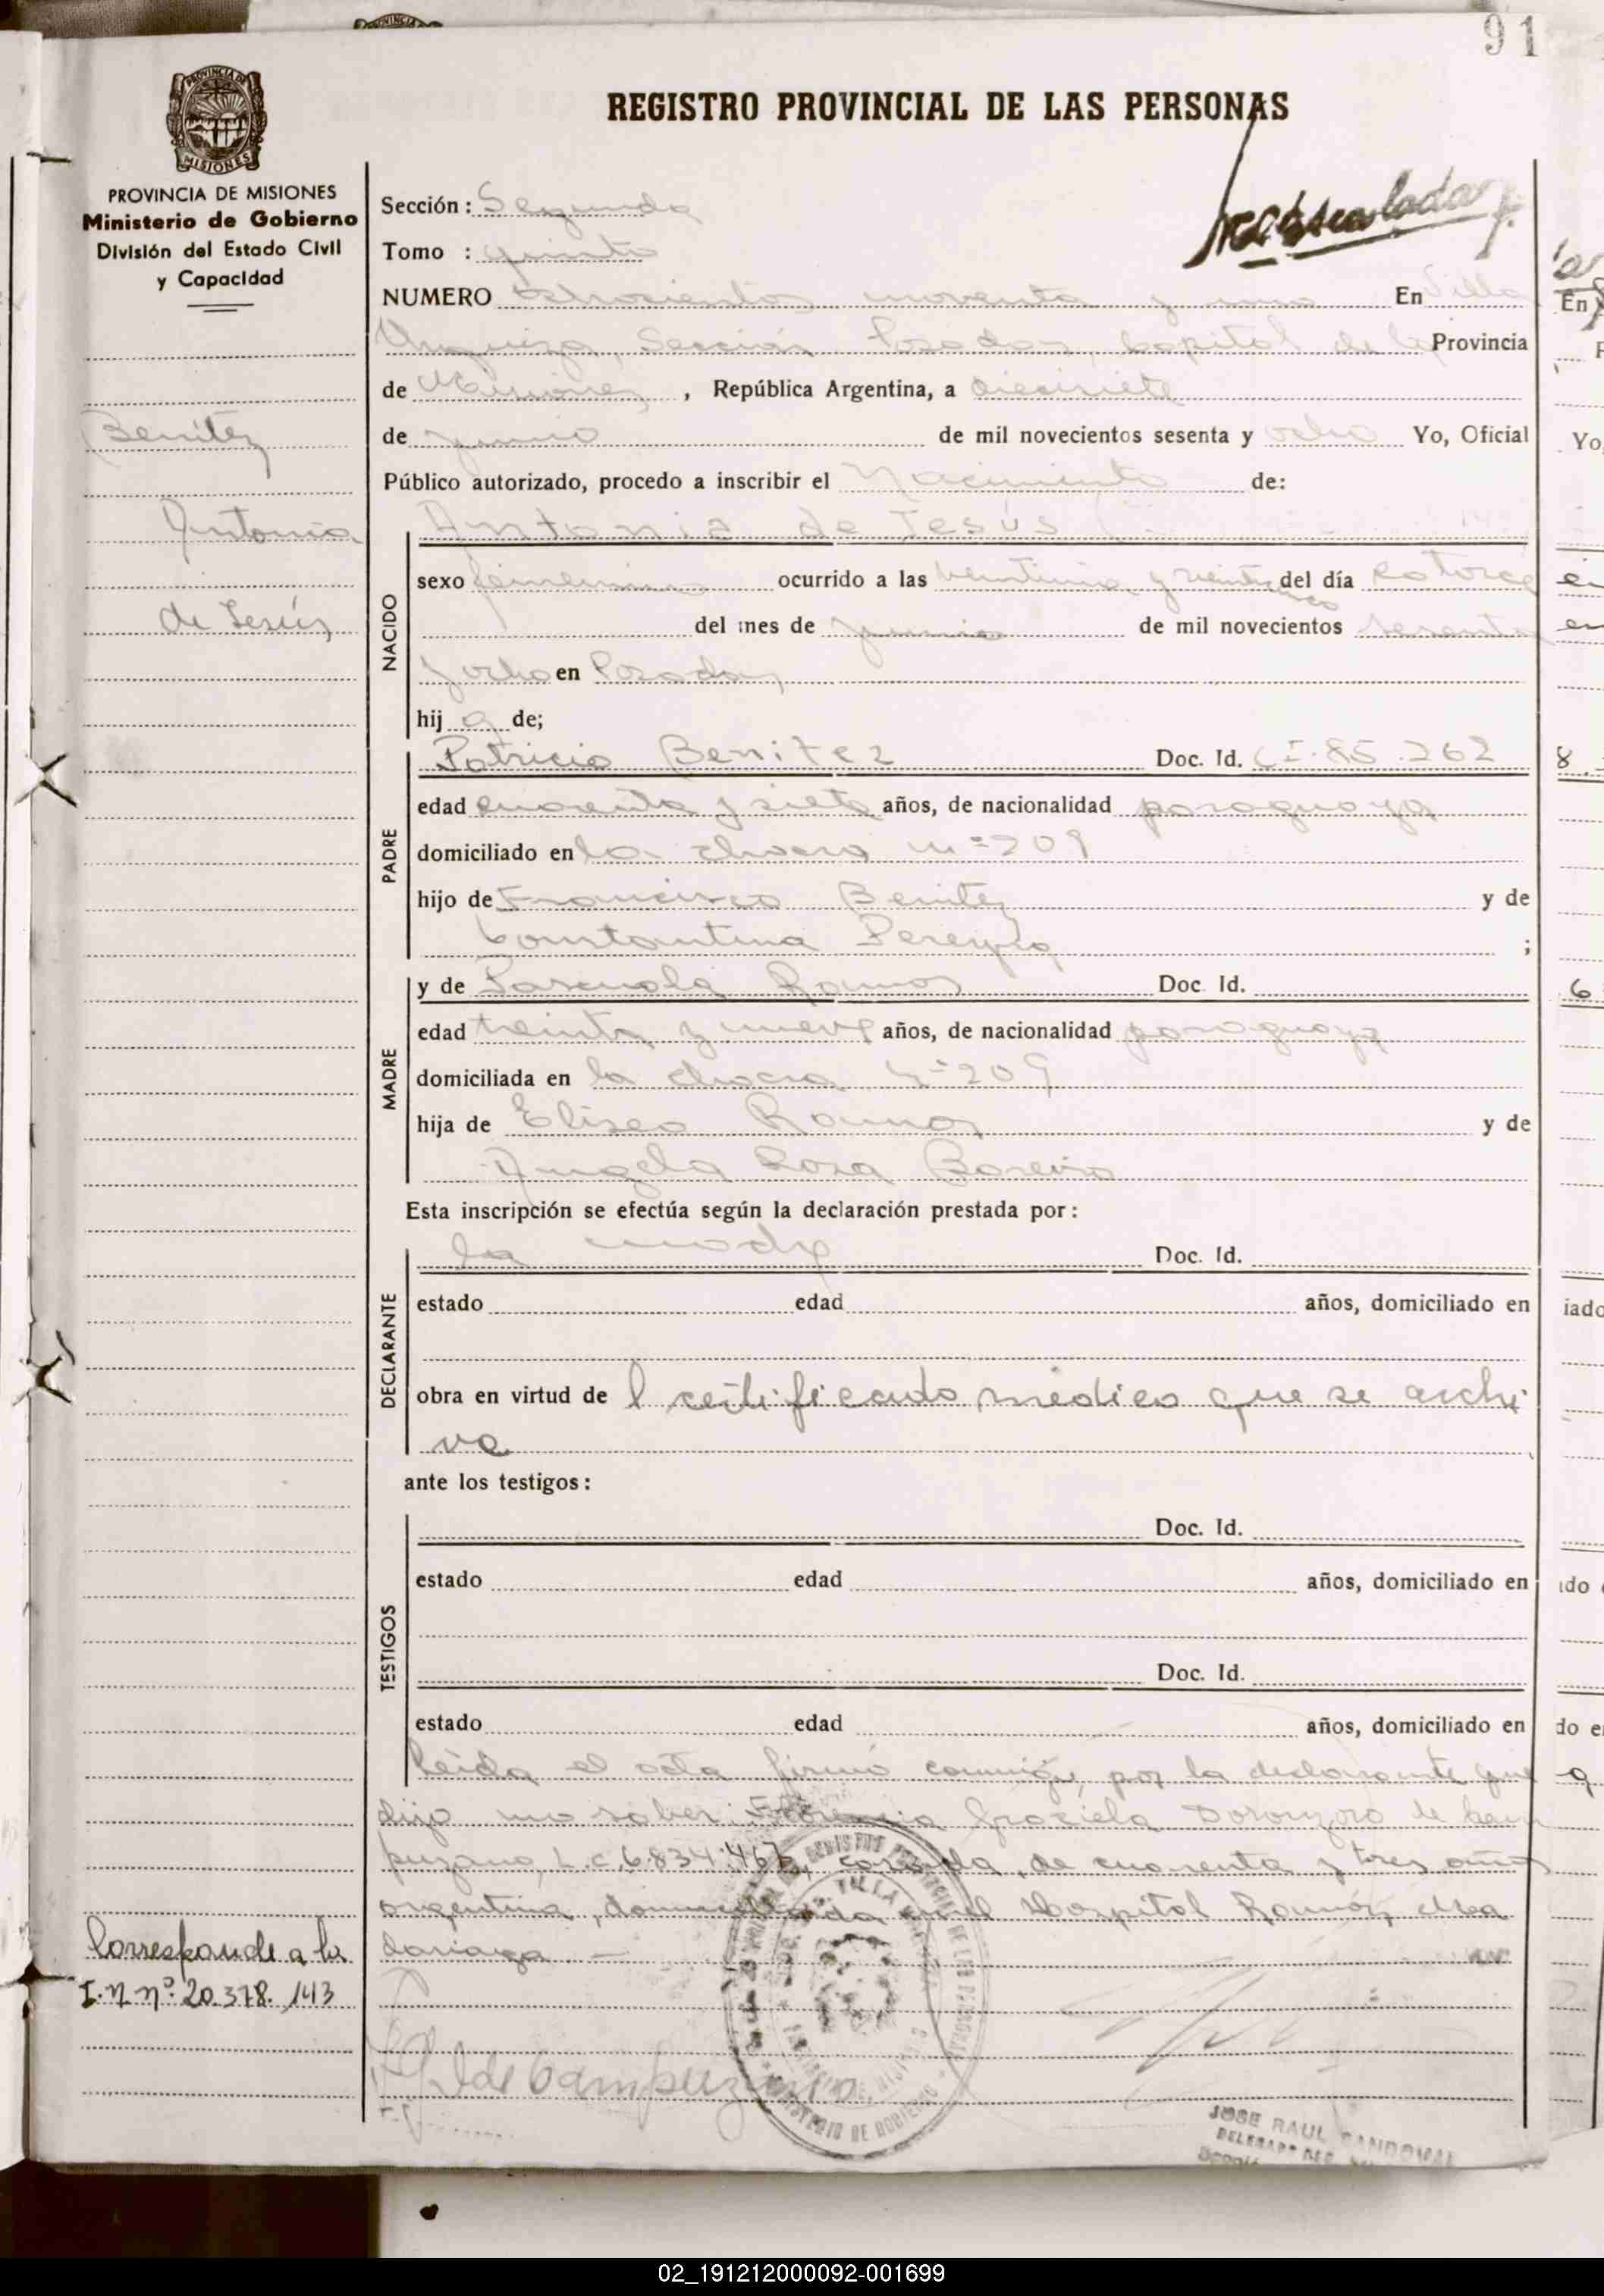 91
REGISTRO PROVINCIAL DE LAS PERSONAS
PROVINCIA DE MISIONES
Ministerio de Gobierno
División del Estado Civil
y Capacidad
Benítez
Antonia
de Jesús
Corresponde a la
I.N nº: 20.378.143
Sección: Segunda
Tomo : quinto
NUMERO ochocientos noventa y uno En Villa
Urquiza, Sección Posadas, Capital de la Provincia
de Misiones, República Argentina, a diecisiete
de junio de mil novecientos sesenta y ocho Yo, Oficial
Público autorizado, procedo a inscribir el Nacimiento de:
NACIDO
Antonia de Jesús
sexo femenino ocurrido a las del día catorce
del mes de junio de mil novecientos sesenta
y ocho en Posadas
hij a de;
PADRE
Patricio Benitez Doc. Id. C.I. 85.262
edad cuarenta y siete años, de nacionalidad paraguaya
domiciliado en la chacra nº 209
hijo de Francisco Benitez y de
Constantina Pereyra ;
MADRE
y de Pascuala Ramos Doc. Id.
edad treinta y nueve años, de nacionalidad paraguaya
domiciliada en la chacra nº 209
hija de Eliseo Ramos y de
Angela Rosa Bareiro
Esta inscripción se efectúa según la declaración prestada por:
DECLARANTE
la madre Doc. Id.
estado edad años, domiciliado en
obra en virtud de l certificado médico que se archi
va
ante los testigos:
TESTIGOS
Doc. Id.
estado edad años, domiciliado en
Doc. Id.
estado edad años, domiciliado en
Leída el acta firmó conmigo, por la declarante que
dijo no saber: Graciela de Cam
puzano, L.C. 6.834.467, casada, de cuarenta y tres años
argentina, domiciliada en el Hospital Ramón Ma
dariaga. —
de Campuzano
JOSE RAUL SANDOVAL
02_191212000092-001699